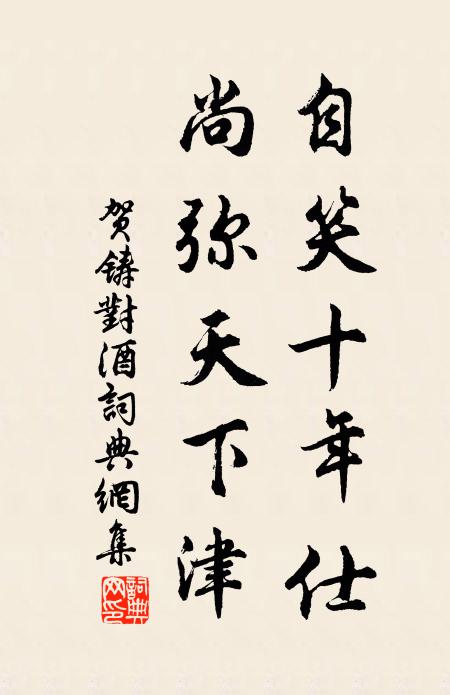 自笑十年仕
尚弥天下津
贺鑄對酒詞典網集
詞典網印